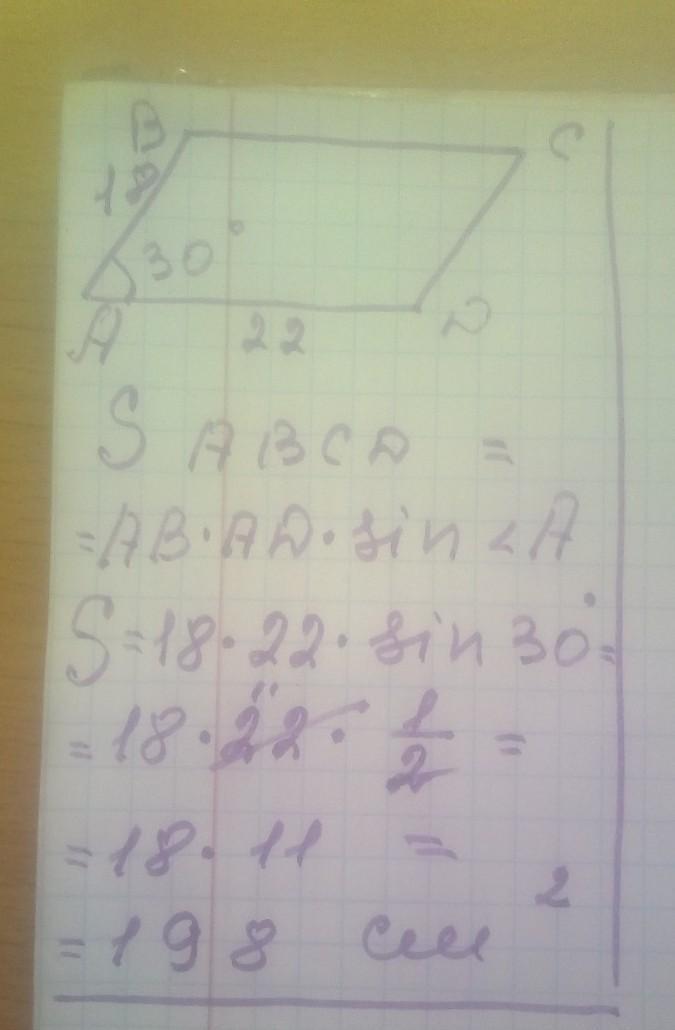 B C
18
30°
A 22 D
S ABCD =
= AB · AD · sin <A
S = 18 · 22 · sin 30° =
= 18 · 22 11 · 1/2 =
= 18 · 11 =
= 198 см²